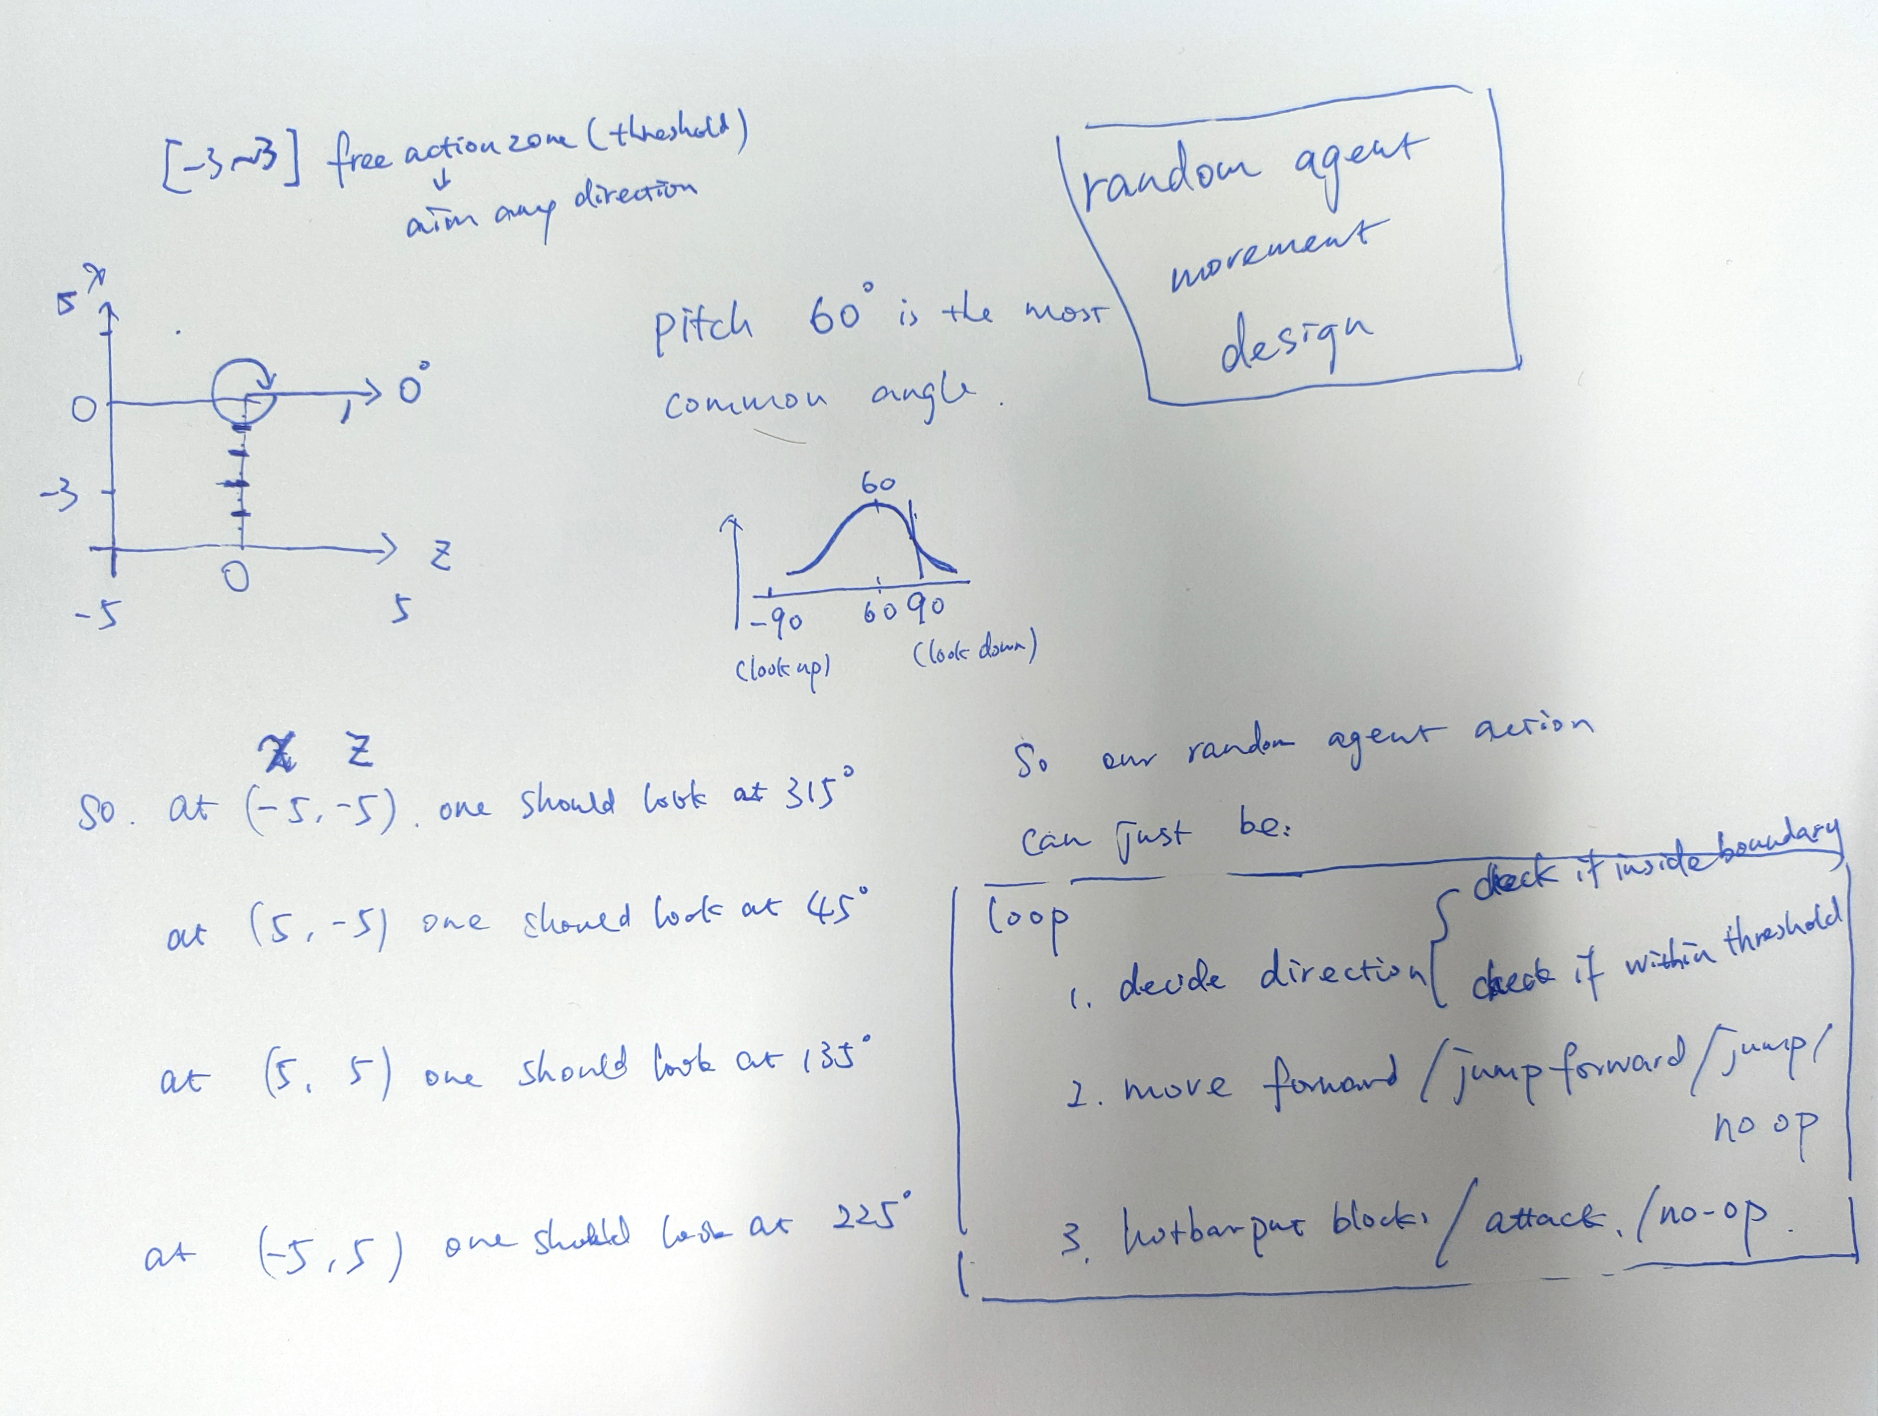 [-3~3] free action zone (threshold)
↓
aim any direction
random agent
movement
design
5 x
0
-3
-5
0
5
z
0°
pitch 60° is the most
common angle.
60
-90
60 90
(look up)
(look down)
x z
So. at (-5, -5). one should look at 315°
at (5, -5) one should look at 45°
at (5, 5) one should look at 135°
at (-5, 5) one should look at 225°
So our random agent action
can just be:
loop
1. decide direction
check if inside boundary
check if within threshold
2. move forward / jump forward / jump /
no op
3. hotbar put blocks / attack. / no-op.